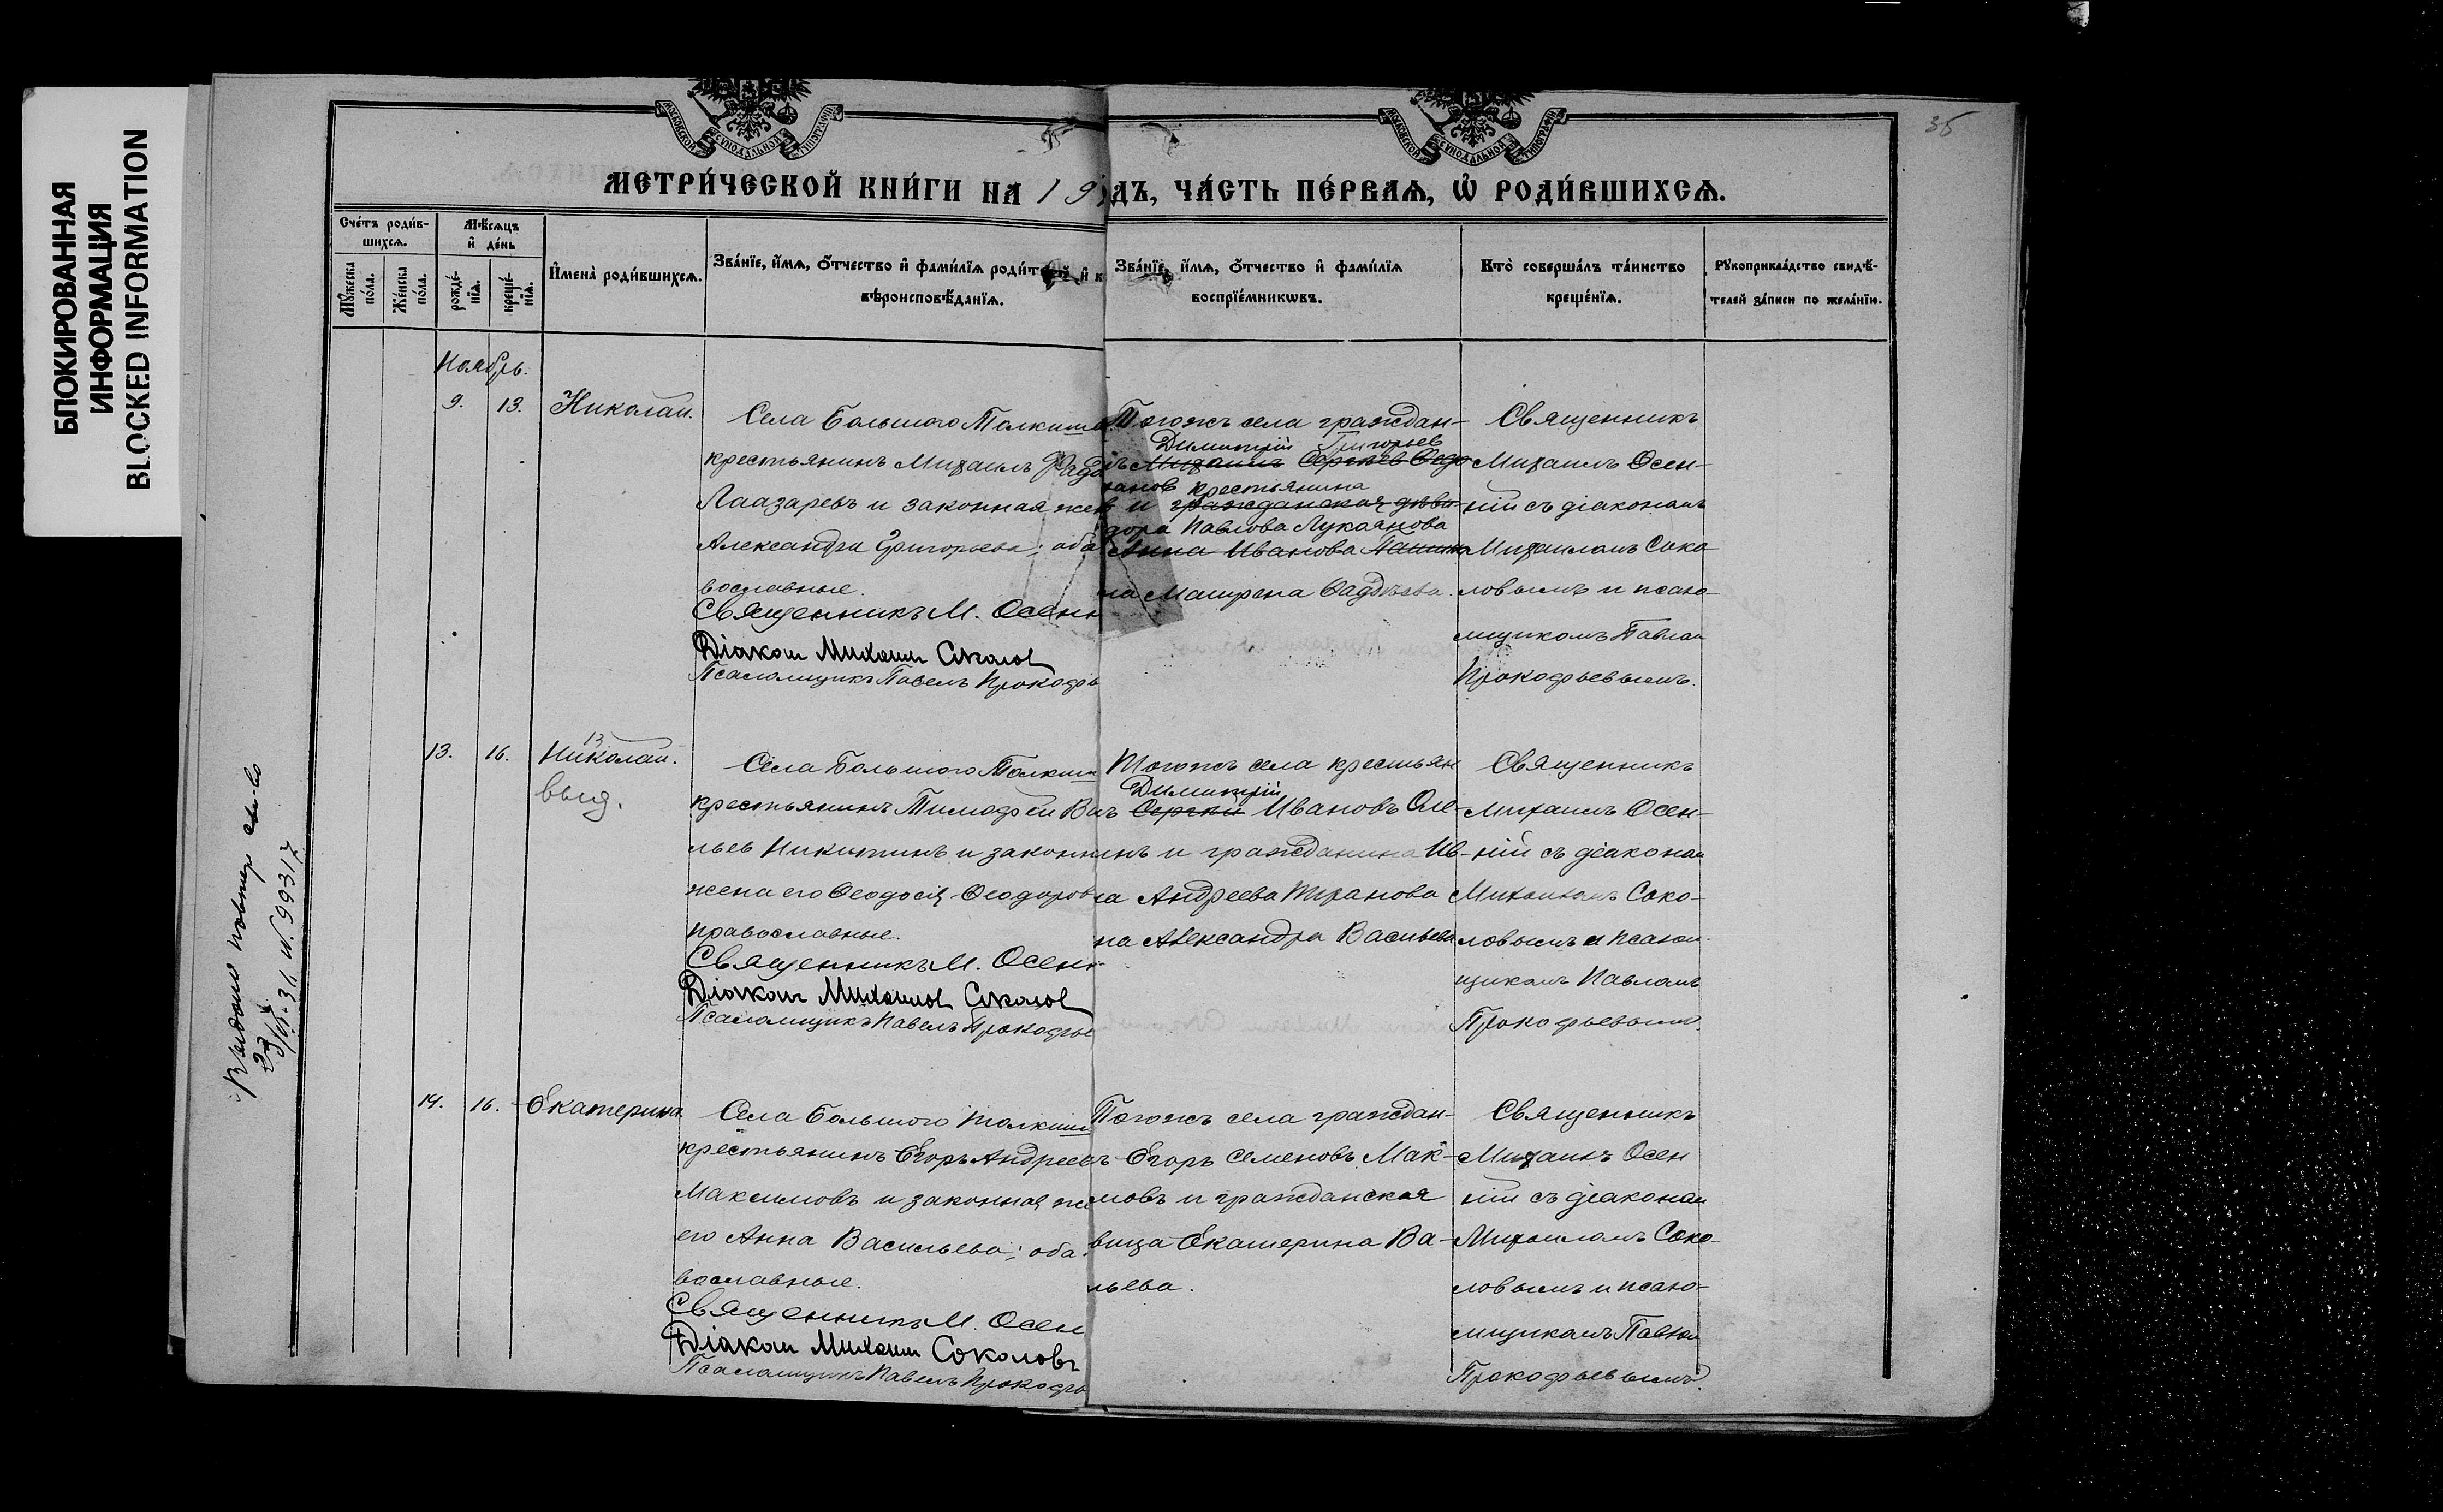 БЛОКИРОВАННАЯ
ИНФОРМАЦИЯ
BLOCKED INFORMATION
35
МОСКОВСКОЙ СѴНОДАЛЬНОЙ ТИПОГРАФІИ
МОСКОВСКОЙ СѴНОДАЛЬНОЙ ТИПОГРАФІИ
МЕТРИ́ЧЕСКОЙ КНИ́ГИ НА 19
ДЪ, ЧА́СТЬ ПЕ́РВАѦ, Ѡ҆ РОДИ́ВШИХСѦ.
Сче́тъ роди́в-
шихсѧ.
Мѣ́сѧцъ
и҆ де́нь
Мꙋ́жеска
по́ла.
Же́нска
по́ла.
рожде́-
нїѧ.
креще́-
нїѧ.
И҆мена̀ роди́вшихсѧ.
Зва́нїе, и҆́мѧ, ѻ҆́тчество и҆ фами́лїѧ роди́т й и҆ к
вѣроисповѣ́данїѧ.
Зва́нїе, и҆́мѧ, ѻ҆́тчество и҆ фами́лїѧ
воспрїе́мникѡвъ.
Кто̀ соверша́лъ та́инство
креще́нїѧ.
Рꙋкоприкла́дство свидѣ́-
телей за́писи по жела́нїю.
Ноябрь.
9. 13. Николай.
Села Большого Толкиша
крестьянинъ Михаилъ Фаде
Лаазаревъ и законная же
Александра Григорьева; оба
вославные.
Священникъ М. Осенн
Діакон Михаил Соколов
Псаломщикъ Павелъ Прокофь
Тогожъ села граждан-
Димитрій Григорьев
ъ Михаилъ Сергѣев Ѳедо
крестьянина
и гражданская дѣви-
дора Павлова Лукоянова
Анна Иванова
на Матрена Фадѣева.
Священникъ
Михаилъ Осен-
ній съ діаконамъ
Михаиломъ Соко
ловымъ и псало-
мщикомъ Павлом
Прокофьевымъ.
13. 16. Николай. 13
выд.
Села Большого Толкиш
крестьянинъ Тимофей Ва
льев Никитинъ и законн
жена его Ѳеодосія Ѳеодоров
православные.
Священникъ М. Осенн
Діаконъ Михаилов Соколов
Псаломщикъ Павелъ Прокофье
Тогожъ села крестьян
Димитрій
ъ Сергѣй Ивановъ Оле-
инъ и гражданина Ив-
на Андреева
на Александра Васильева
Священникъ
Михаилъ Осен-
ній съ діаконам
Михаиломъ Соко-
ловымъ и псалом-
щикамъ Павламъ
Прокофьевымъ.
14. 16. Екатерина
Села Большого Толкиш
крестьянинъ Егоръ Андреев
Максимовъ и законная же
его Анна Васильева; оба
вославные.
Священникъ М. Осен
Діакон Михаил Соколовъ
Псаломщикъ Павелъ Прокофь
Тогожъ села граждан-
ъ Егоръ Семеновъ Мак-
мовъ и гражданская
вица Екатерина Ва-
льева.
Священникъ
Михаилъ Осен
ній съ діаконам
Михаиломъ Соко-
ловымъ и псало-
мщикамъ Павлом
Прокофьевымъ.
повтор св-во
31 N. 99317